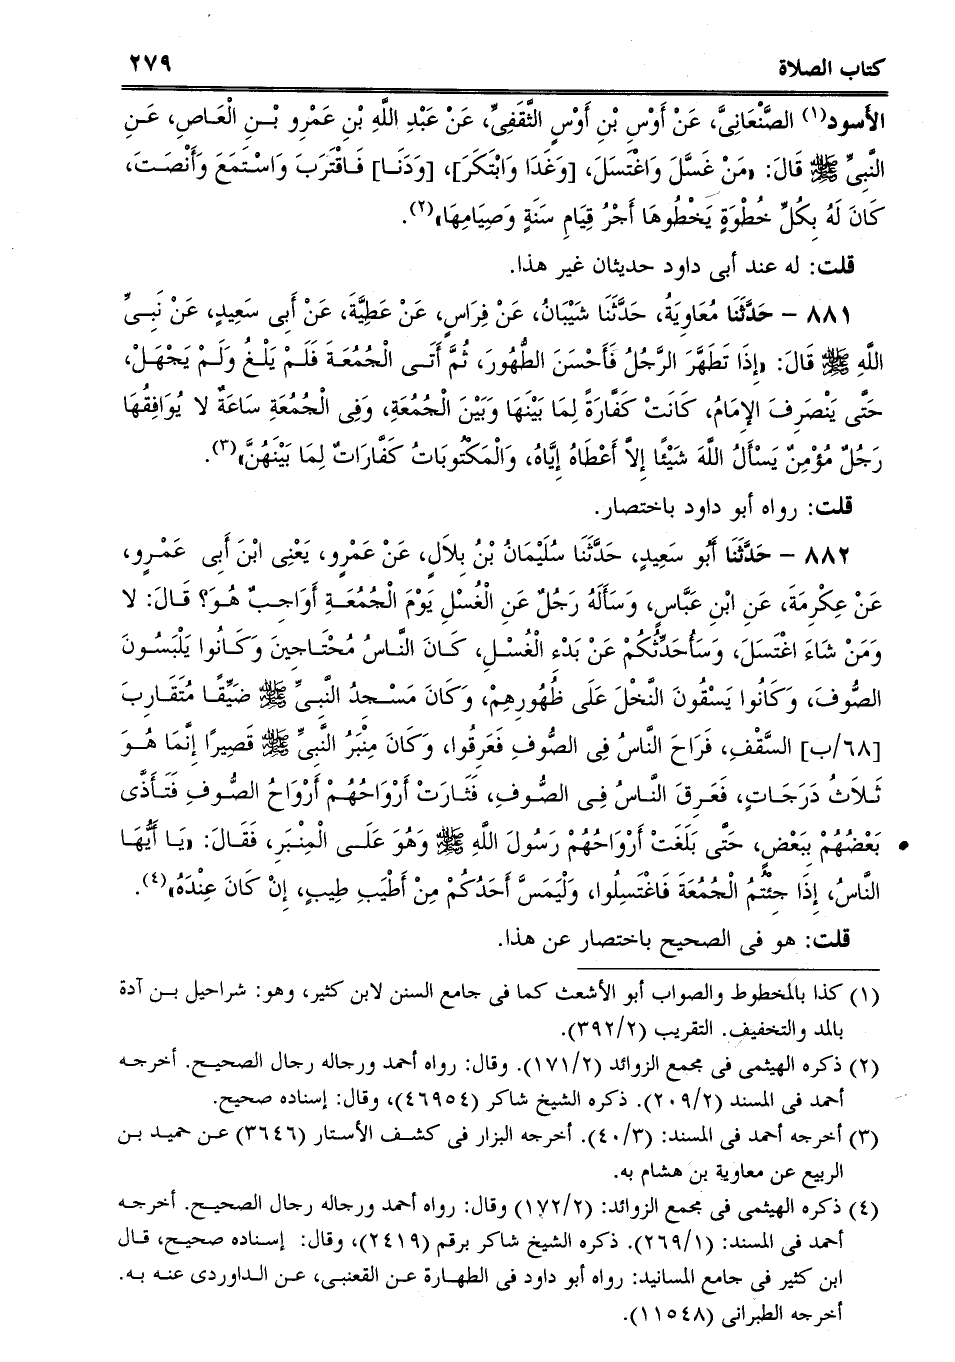 كتاب الصلاة ٢٧٩
الأسود(١) الصَّنْعَانِيَّ، عَنْ أَوْسِ بْنِ أَوْسٍ الثَّقَفِيِّ، عَنْ عَبْدِ اللَّهِ بْنِ عَمْرِو بْـنِ الْعَـاصِ، عَـنِ
النَّبِيِّ ﷺ قَالَ: «مَنْ غَسَّلَ وَاغْتَسَلَ، [وَغَدَا وَابْتَكَرَ]، [وَدَنَـا] فَـاقْتَرَبَ وَاسْـتَمَعَ وَأَنْصَـتَ،
كَانَ لَهُ بِكُلِّ خُطْوَةٍ يَخْطُوهَا أَجْرُ قِيَامِ سَنَةٍ وَصِيَامِهَا»(٢).
قلت: له عند أبى داود حديثان غير هذا.
٨٨١ – حَدَّثَنَا مُعَاوِيَةُ، حَدَّثَنَا شَيْبَانُ، عَنْ فِرَاسٍ، عَنْ عَطِيَّةَ، عَنْ أَبِى سَعِيدٍ، عَنْ نَبِـىِّ
اللَّهِ ﷺ قَالَ: «إِذَا تَطَهَّرَ الرَّجُلُ فَأَحْسَنَ الطُّهُورَ، ثُمَّ أَتَـى الْجُمُعَةَ فَلَـمْ يَلْـغُ وَلَـمْ يَجْهَـلْ،
حَتَّى يَنْصَرِفَ الإِمَامُ، كَانَتْ كَفَّارَةً لِمَا بَيْنَهَا وَبَيْنَ الْجُمُعَةِ، وَفِى الْجُمُعَةِ سَاعَةٌ لا يُوَافِقُهَا
رَجُلٌ مُؤْمِنٌ يَسْأَلُ اللَّهَ شَيْئًا إِلاَّ أَعْطَاهُ إِيَّاهُ، وَالْمَكْتُوبَاتُ كَفَّارَاتٌ لِمَا بَيْنَهُنَّ»(٣).
قلت: رواه أبو داود باختصار.
٨٨٢ – حَدَّثَنَا أَبُو سَعِيدٍ، حَدَّثَنَا سُلَيْمَانُ بْنُ بِلالٍ، عَنْ عَمْرٍو، يَعْنِى ابْنَ أَبِى عَمْـرٍو،
عَنْ عِكْرِمَةَ، عَنِ ابْنِ عَبَّاسٍ، وَسَأَلَهُ رَجُلٌ عَنِ الْغُسْلِ يَوْمَ الْجُمُعَـةِ أَوَاجِـبٌ هُـوَ؟ قَـالَ: لا
وَمَنْ شَاءَ اغْتَسَلَ، وَسَأُحَدِّثُكُمْ عَنْ بَدْءِ الْغُسْلِ، كَـانَ النَّـاسُ مُحْتَـاجِينَ وَكَـانُوا يَلْبَسُـونَ
الصُّوفَ، وَكَانُوا يَسْقُونَ النَّخْلَ عَلَى ظُهُورِهِمْ، وَكَانَ مَسْـجِدُ النَّبِـىِّ ﷺ ضَيِّقًـا مُتَقَـارِبَ
[٦٨/ب] السَّقْفِ، فَرَاحَ النَّاسُ فِى الصُّوفِ فَعَرِقُوا، وَكَانَ مِنْبَرُ النَّبِىِّ ﷺ قَصِيرًا إِنَّمَا هُـوَ
ثَـلاثُ دَرَجَـاتٍ، فَعَـرِقَ النَّـاسُ فِـى الصُّـوفِ، فَثَـارَتْ أَرْوَاحُهُـمْ أَرْوَاحُ الصُّـوفِ فَتَـأَذَّى
بَعْضُهُمْ بِبَعْضٍ، حَتَّى بَلَغَتْ أَرْوَاحُهُمْ رَسُولَ اللَّهِ ﷺ وَهُوَ عَلَـى الْمِنْبَـرِ، فَقَـالَ: «يَـا أَيُّهَـا
النَّاسُ، إِذَا جِئْتُمُ الْجُمُعَةَ فَاغْتَسِلُوا، وَلْيَمَسَّ أَحَدُكُمْ مِنْ أَطْيَبِ طِيبٍ، إِنْ كَانَ عِنْدَهُ»(٤).
قلت: هو فى الصحيح باختصار عن هذا.
(١) كذا بالمخطوط والصواب أبو الأشعث كما فى جامع السنن لابن كثير، وهو: شراحيل بـن آدة
بالمد والتخفيف. التقريب (٣٩٢/٢).
(٢) ذكره الهيثمى فى مجمع الزوائد (١٧١/٢). وقال: رواه أحمد ورجاله رجال الصحيـح. أخرجـه
أحمد فى المسند (٢٠٩/٢). ذكره الشيخ شاكر (٤٦٩٥٤)، وقال: إسناده صحيح.
(٣) أخرجه أحمد فى المسند: (٤٠/٣). أخرجه البزار فى كشـف الأستار (٣٦٤٦) عـن حميـد بـن
الربيع عن معاوية بن هشام به.
(٤) ذكره الهيثمى فى مجمع الزوائد: (١٧٢/٢) وقال: رواه أحمد ورجاله رجال الصحيـح. أخرجـه
أحمد فى المسند: (٢٦٩/١). ذكره الشيخ شاكر برقم (٢٤١٩)، وقال: إسناده صحيـح، قـال
ابن كثير فى جامع المسانيد: رواه أبو داود فى الطهارة عـن القعنبـى، عـن الـداوردى عنـه بـه.
أخرجه الطبرانى (١١٥٤٨).